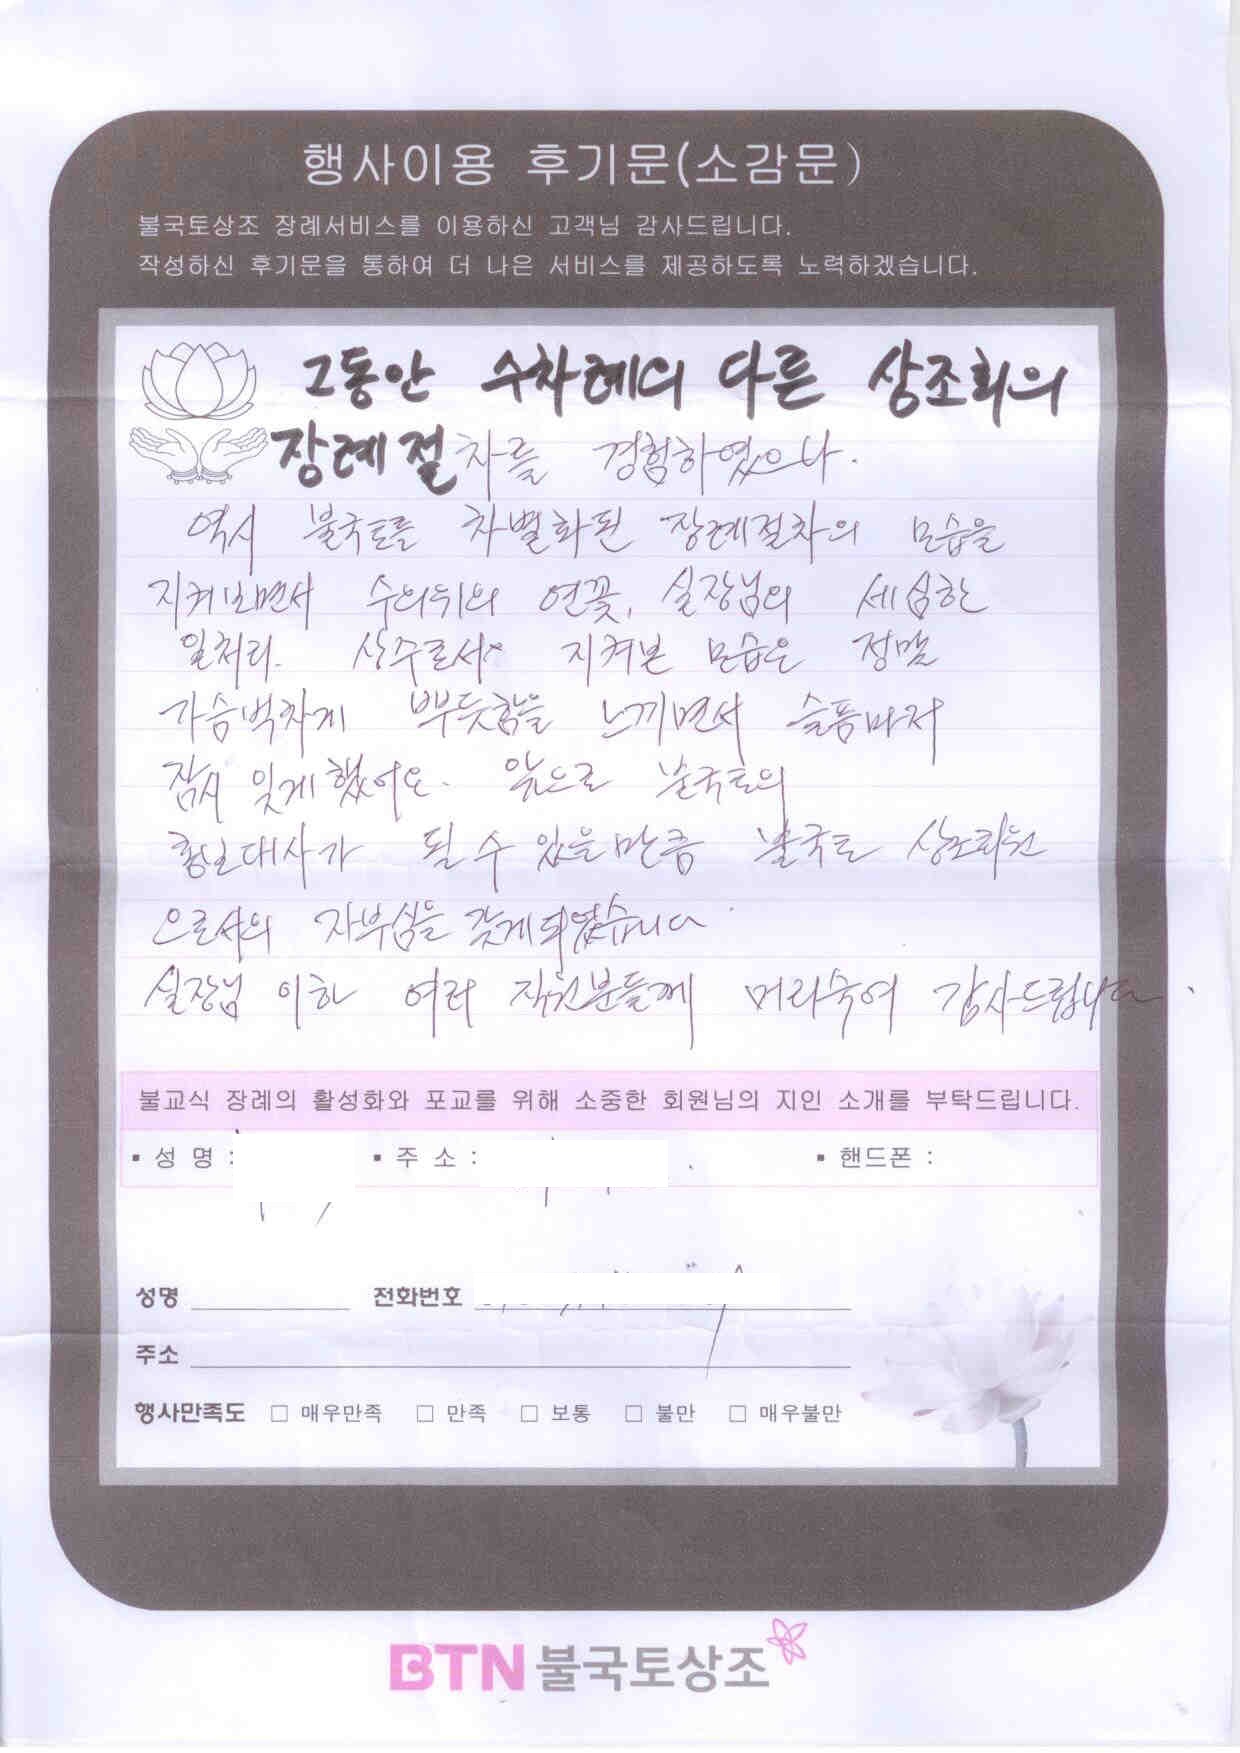 행사이용 후기문(소감문)
불국토상조 장례서비스를 이용하신 고객님 감사드립니다.
작성하신 후기문을 통하여 더 나은 서비스를 제공하도록 노력하겠습니다.
그동안 수차례의 다른 상조회의
장례절차를 경험하였으나.
역시 불국토를 차별화된 장례절차의 모습을
지켜보면서 수의위의 연꽃, 실장님의 세심한
일처리. 상주로서 지켜본 모습은 정말
가슴벅차게 뿌듯함을 느끼면서 슬픔마저
잠시 잊게했어요. 앞으로 불국토의
홍보대사가 될 수 있을만큼 불국토 상조회원
으로서의 자부심을 갖게되었습니다.
실장님 이하 여러 직원분들께 머리숙여 감사드립니다.
불교식 장례의 활성화와 포교를 위해 소중한 회원님의 지인 소개를 부탁드립니다.
▪ 성 명 : ▪ 주 소 : ▪ 핸드폰 :
성명 전화번호
주소
행사만족도 □ 매우만족 □ 만족 □ 보통 □ 불만 □ 매우불만
BTN 불국토상조